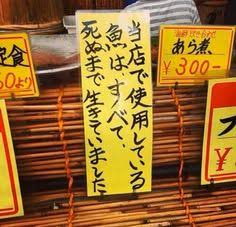 当店で使用している
魚は、すべて、
死ぬまで生きていました
あら煮
¥300-
定食
50より
¥